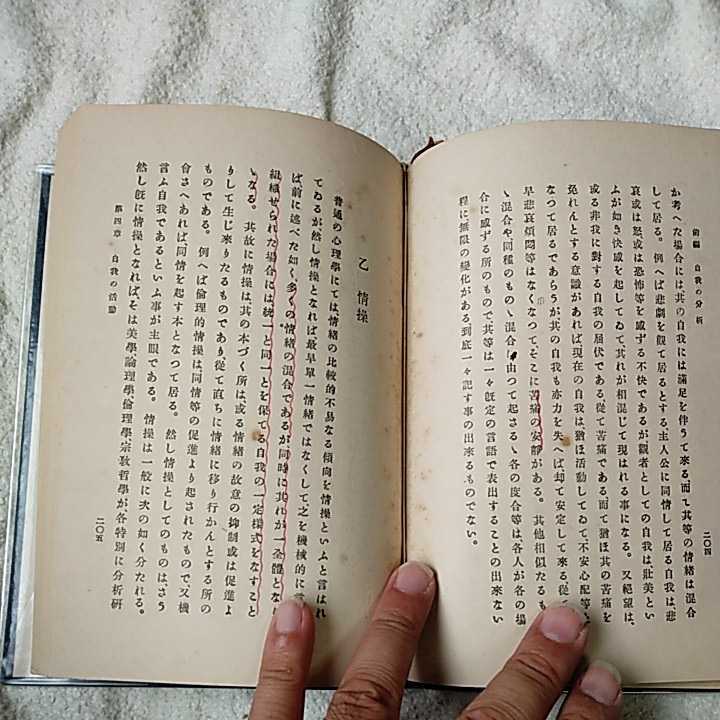 前編 自我の分析
二〇四
か考へた場合には其の自我には滿足を伴うて來る而て其等の情緒は混合
して居る。例へば悲劇を觀て居るとする主人公に同情して居る自我は、悲
哀或は怒或は恐怖等を感ずる不快であるが觀者としての自我は壯美とい
ふが如き快感を起してゐて其れが相混じて現はれる事になる。又絕望は、
或る非我に對する自我の屈伏である、從て苦痛である而て猶ほ其の苦痛を
免れんとする意識があれば現在の自我は猶ほ活動してゐて不安心配等と
なつて居るであらうが其の自我も亦力を失へば却て安定して來る從
早悲哀煩悶等はなくなつて、そこに苦痛の安靜がある。其他相似たるも
ゝ混合や同種のものゝ混合に由つて起さるゝ各の度合等は、各人が各の場
合に感ずる所のもので其等は一々旣定の言語で表出することの出來ない
程に無限の變化がある到底一々記す事の出來るものでない。
乙 情操
普通の心理學にては、情緖の比較的不易なる傾向を情操といふと言はれ
てゐるが然し情操となれば最早單一情緖ではなくして之を機械的に言
ば前に述べた如く多くの情緖の混合であるが同時に其れが一全體とな
組織せられた場合には統一と同一とを保てる自我の一定樣式をなすこと
ゝなる。其故に情操は、其の本づく所は、或る情緖の故意の抑制或は促進よ
りして生じ來りたるものであり、從て直ちに情緖に移り行かんとする所の
ものである。例へば倫理的情操は、同情等の促進より起されたもので、又機
會さへあれば、同情を起す本となつて居る。然し情操としてのものは、さう
言ふ自我であるといふ事が主眼である。情操は一般に次の如く分たれる。
然し旣に情操となれば、そは美學、論理學、倫理學、宗敎哲學が、各特別に分析研
第四章 自我の活動
二〇五